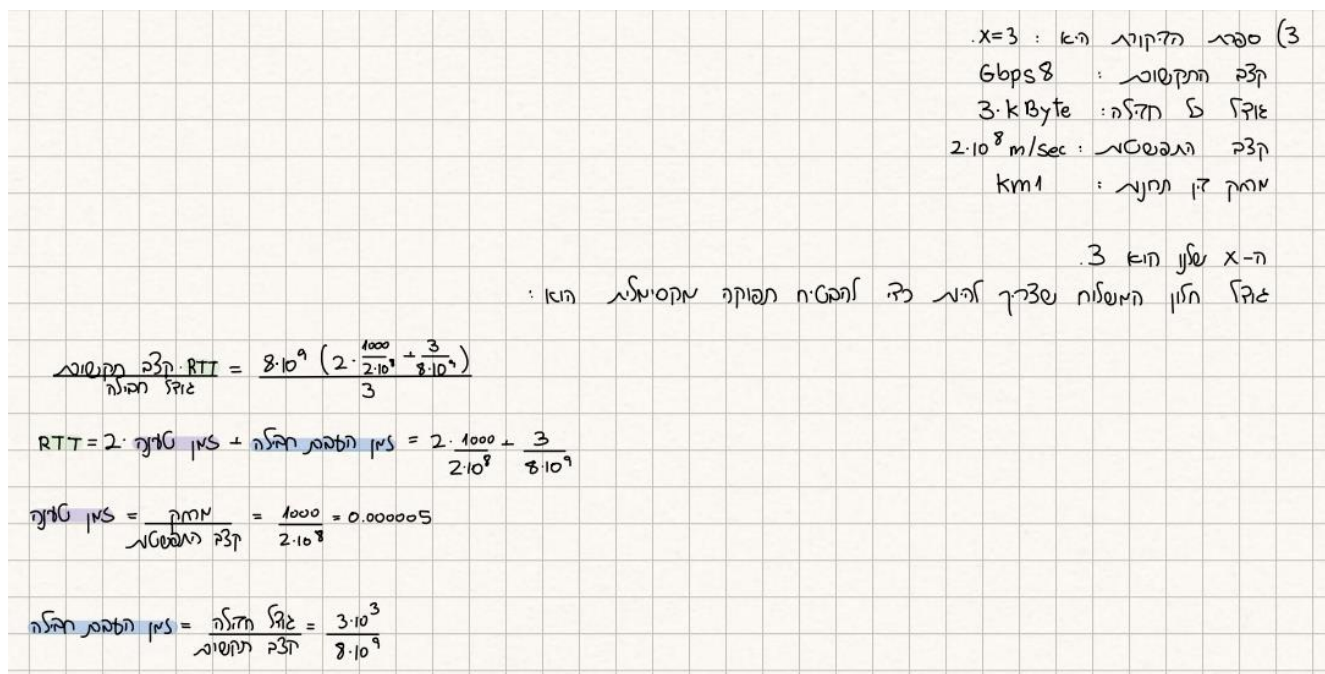 3) ספרת הביקורת היא : x=3.
קצב התקשורת : 8 Gbps
גודל כל חבילה: 3·kByte
קצב התפשטות : 2·10⁸ m/sec
מרחק בין תחנות : 1 km
ה-x שלנו הוא 3.
גודל חלון המשלוח שצריך להיות כדי להבטיח תפוקה מקסימלית הוא :
קצב תקשורת · RTT / גודל חבילה = 8·10⁹ (2 · 1000/2·10⁸ + 3/8·10⁹) / 3
RTT = 2 · זמן טעינה + זמן העברת חבילה = 2 · 1000/2·10⁸ + 3/8·10⁹
זמן טעינה = מרחק / קצב התפשטות = 1000/2·10⁸ = 0.000005
זמן העברת חבילה = גודל חבילה / קצב תקשורת = 3·10³/8·10⁹